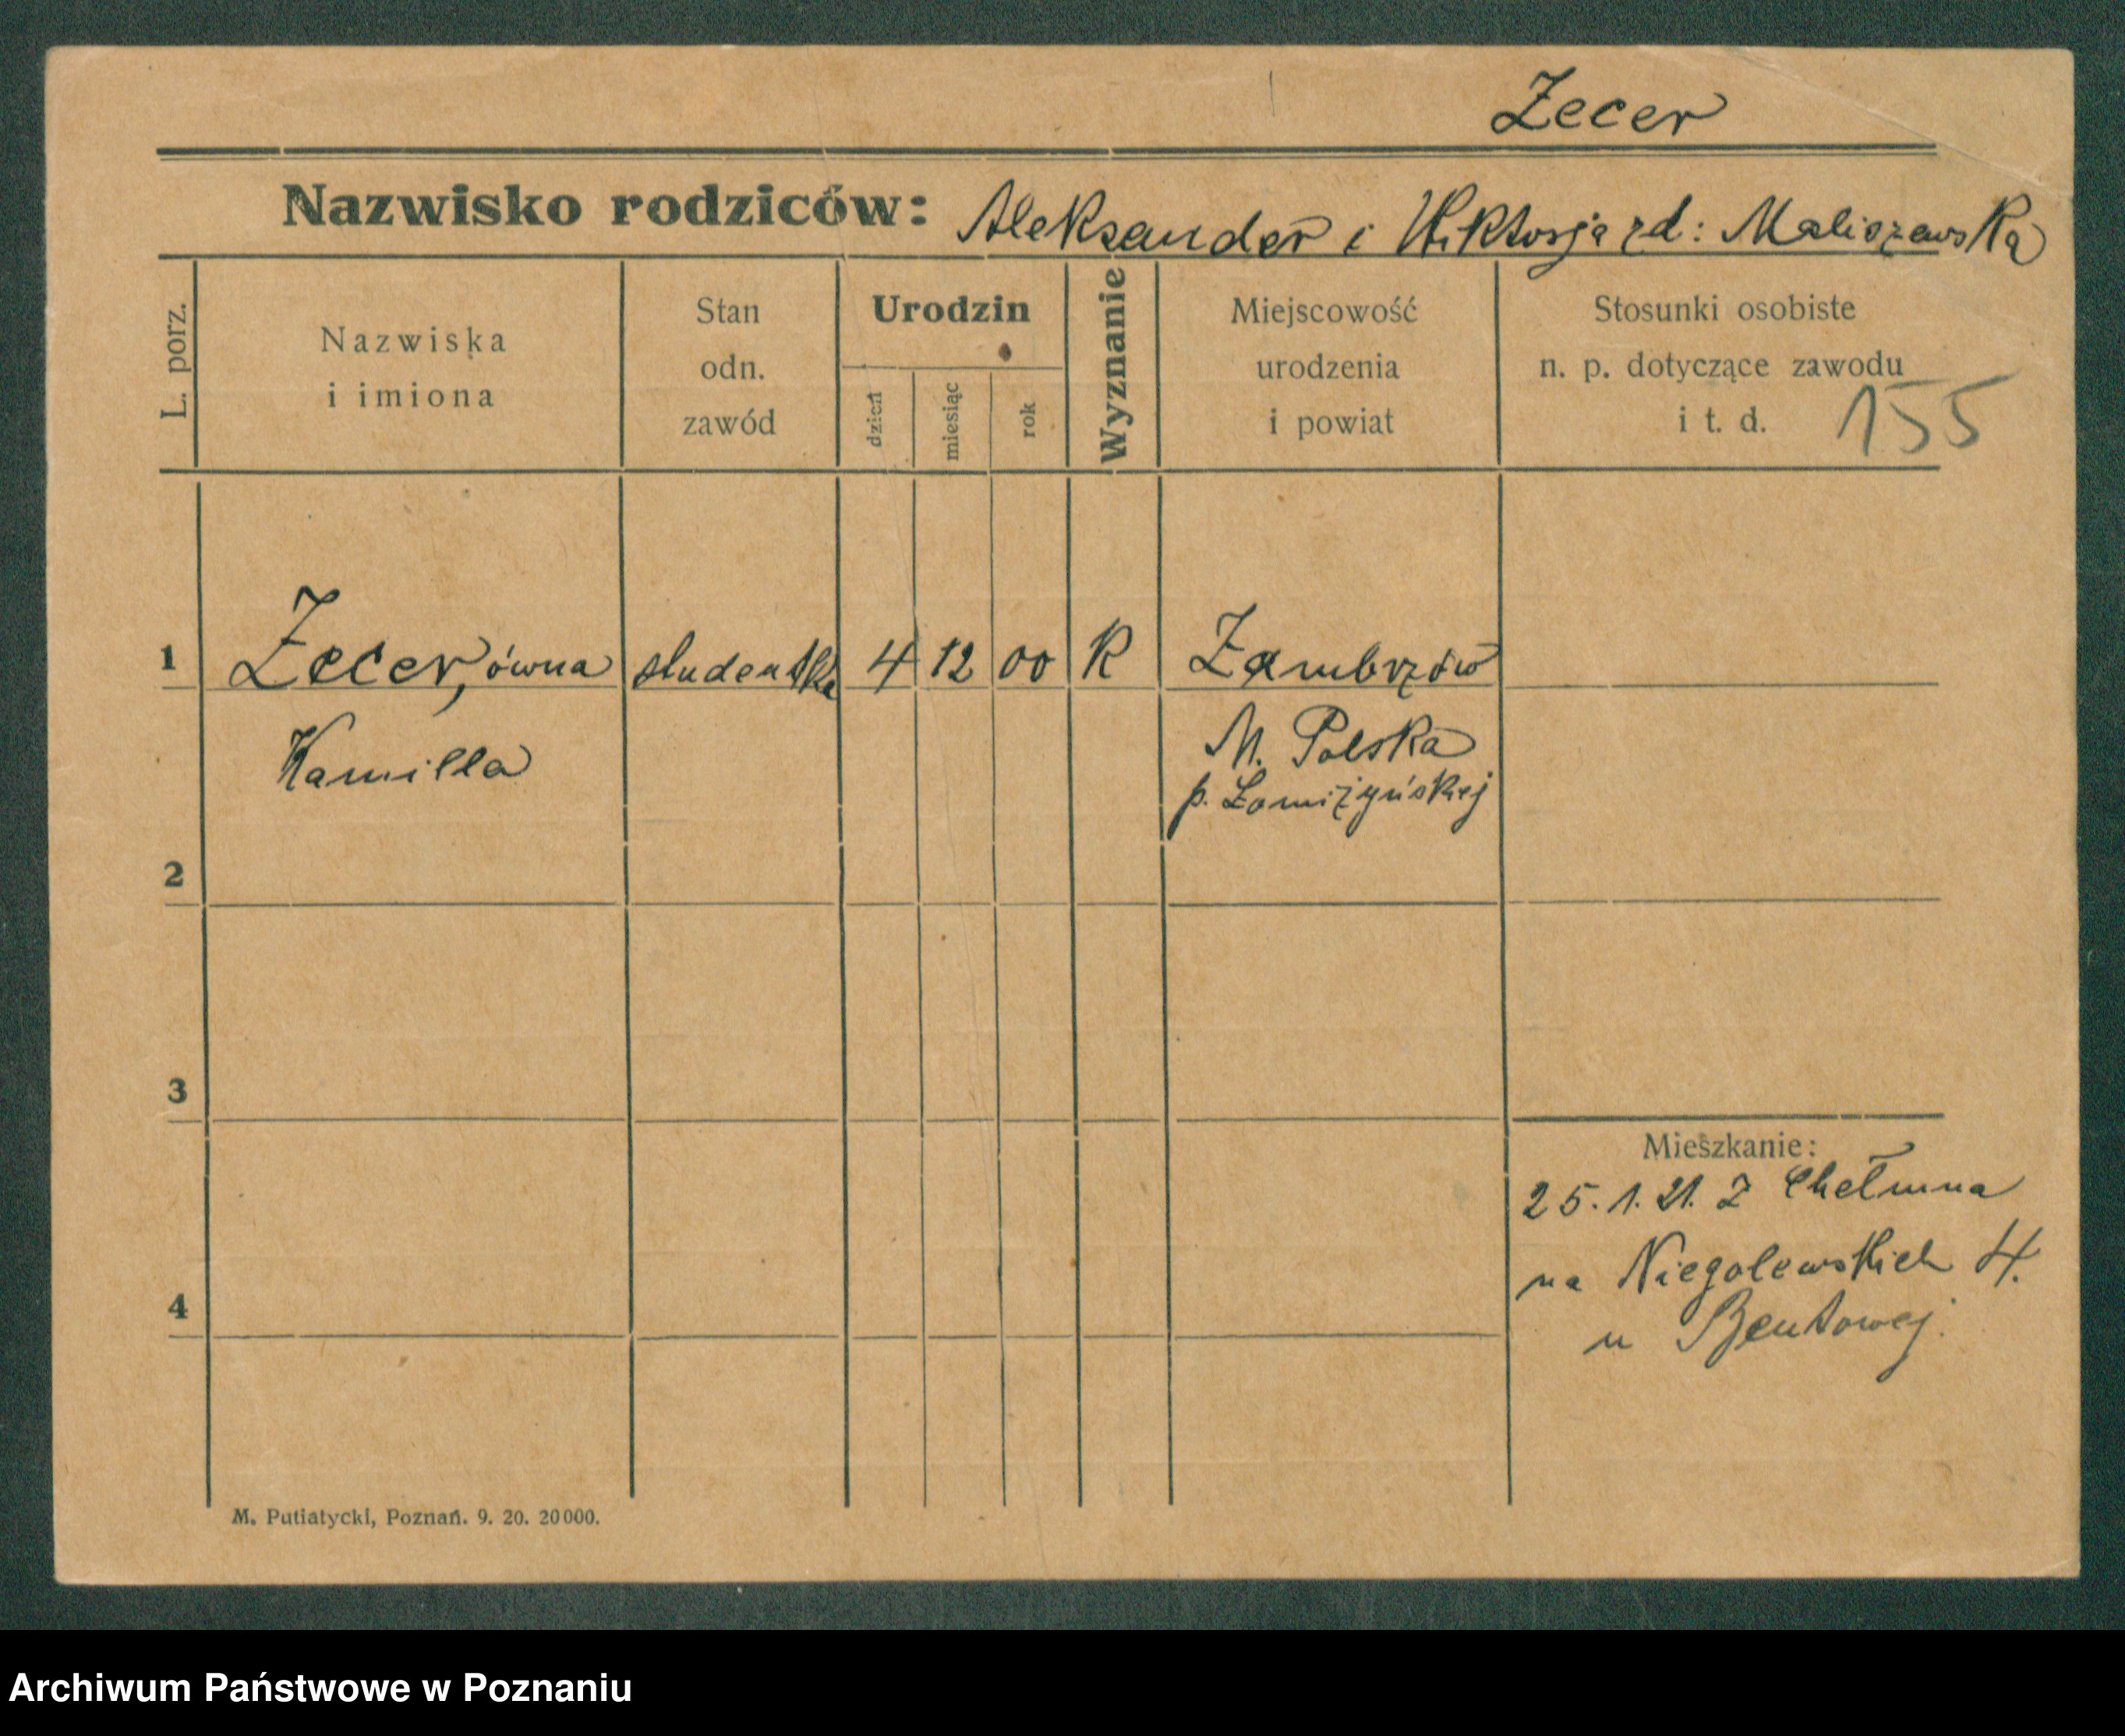 Zecer
Nazwisko rodziców: Aleksander i Wiktorja zd: Maliszewska
L. porz.
Nazwiska
i imiona
Stan
odn.
zawód
Urodzin
dzień
miesiąc
rok
Wyznanie
Miejscowość
urodzenia
i powiat
Stosunki osobiste
n. p. dotyczące zawodu
i t. d.
155
1 Zecer, ówna studentka 4 12 00 K Zambrzów
Kamilla
M. Polska
p. Łomiżyńskiej
2
3
4
Mieszkanie:
25.1.21. z Chełmna
na Niegolewskich 4.
u Bentowej.
M. Putiatycki, Poznań. 9. 20. 20000.
Archiwum Państwowe w Poznaniu